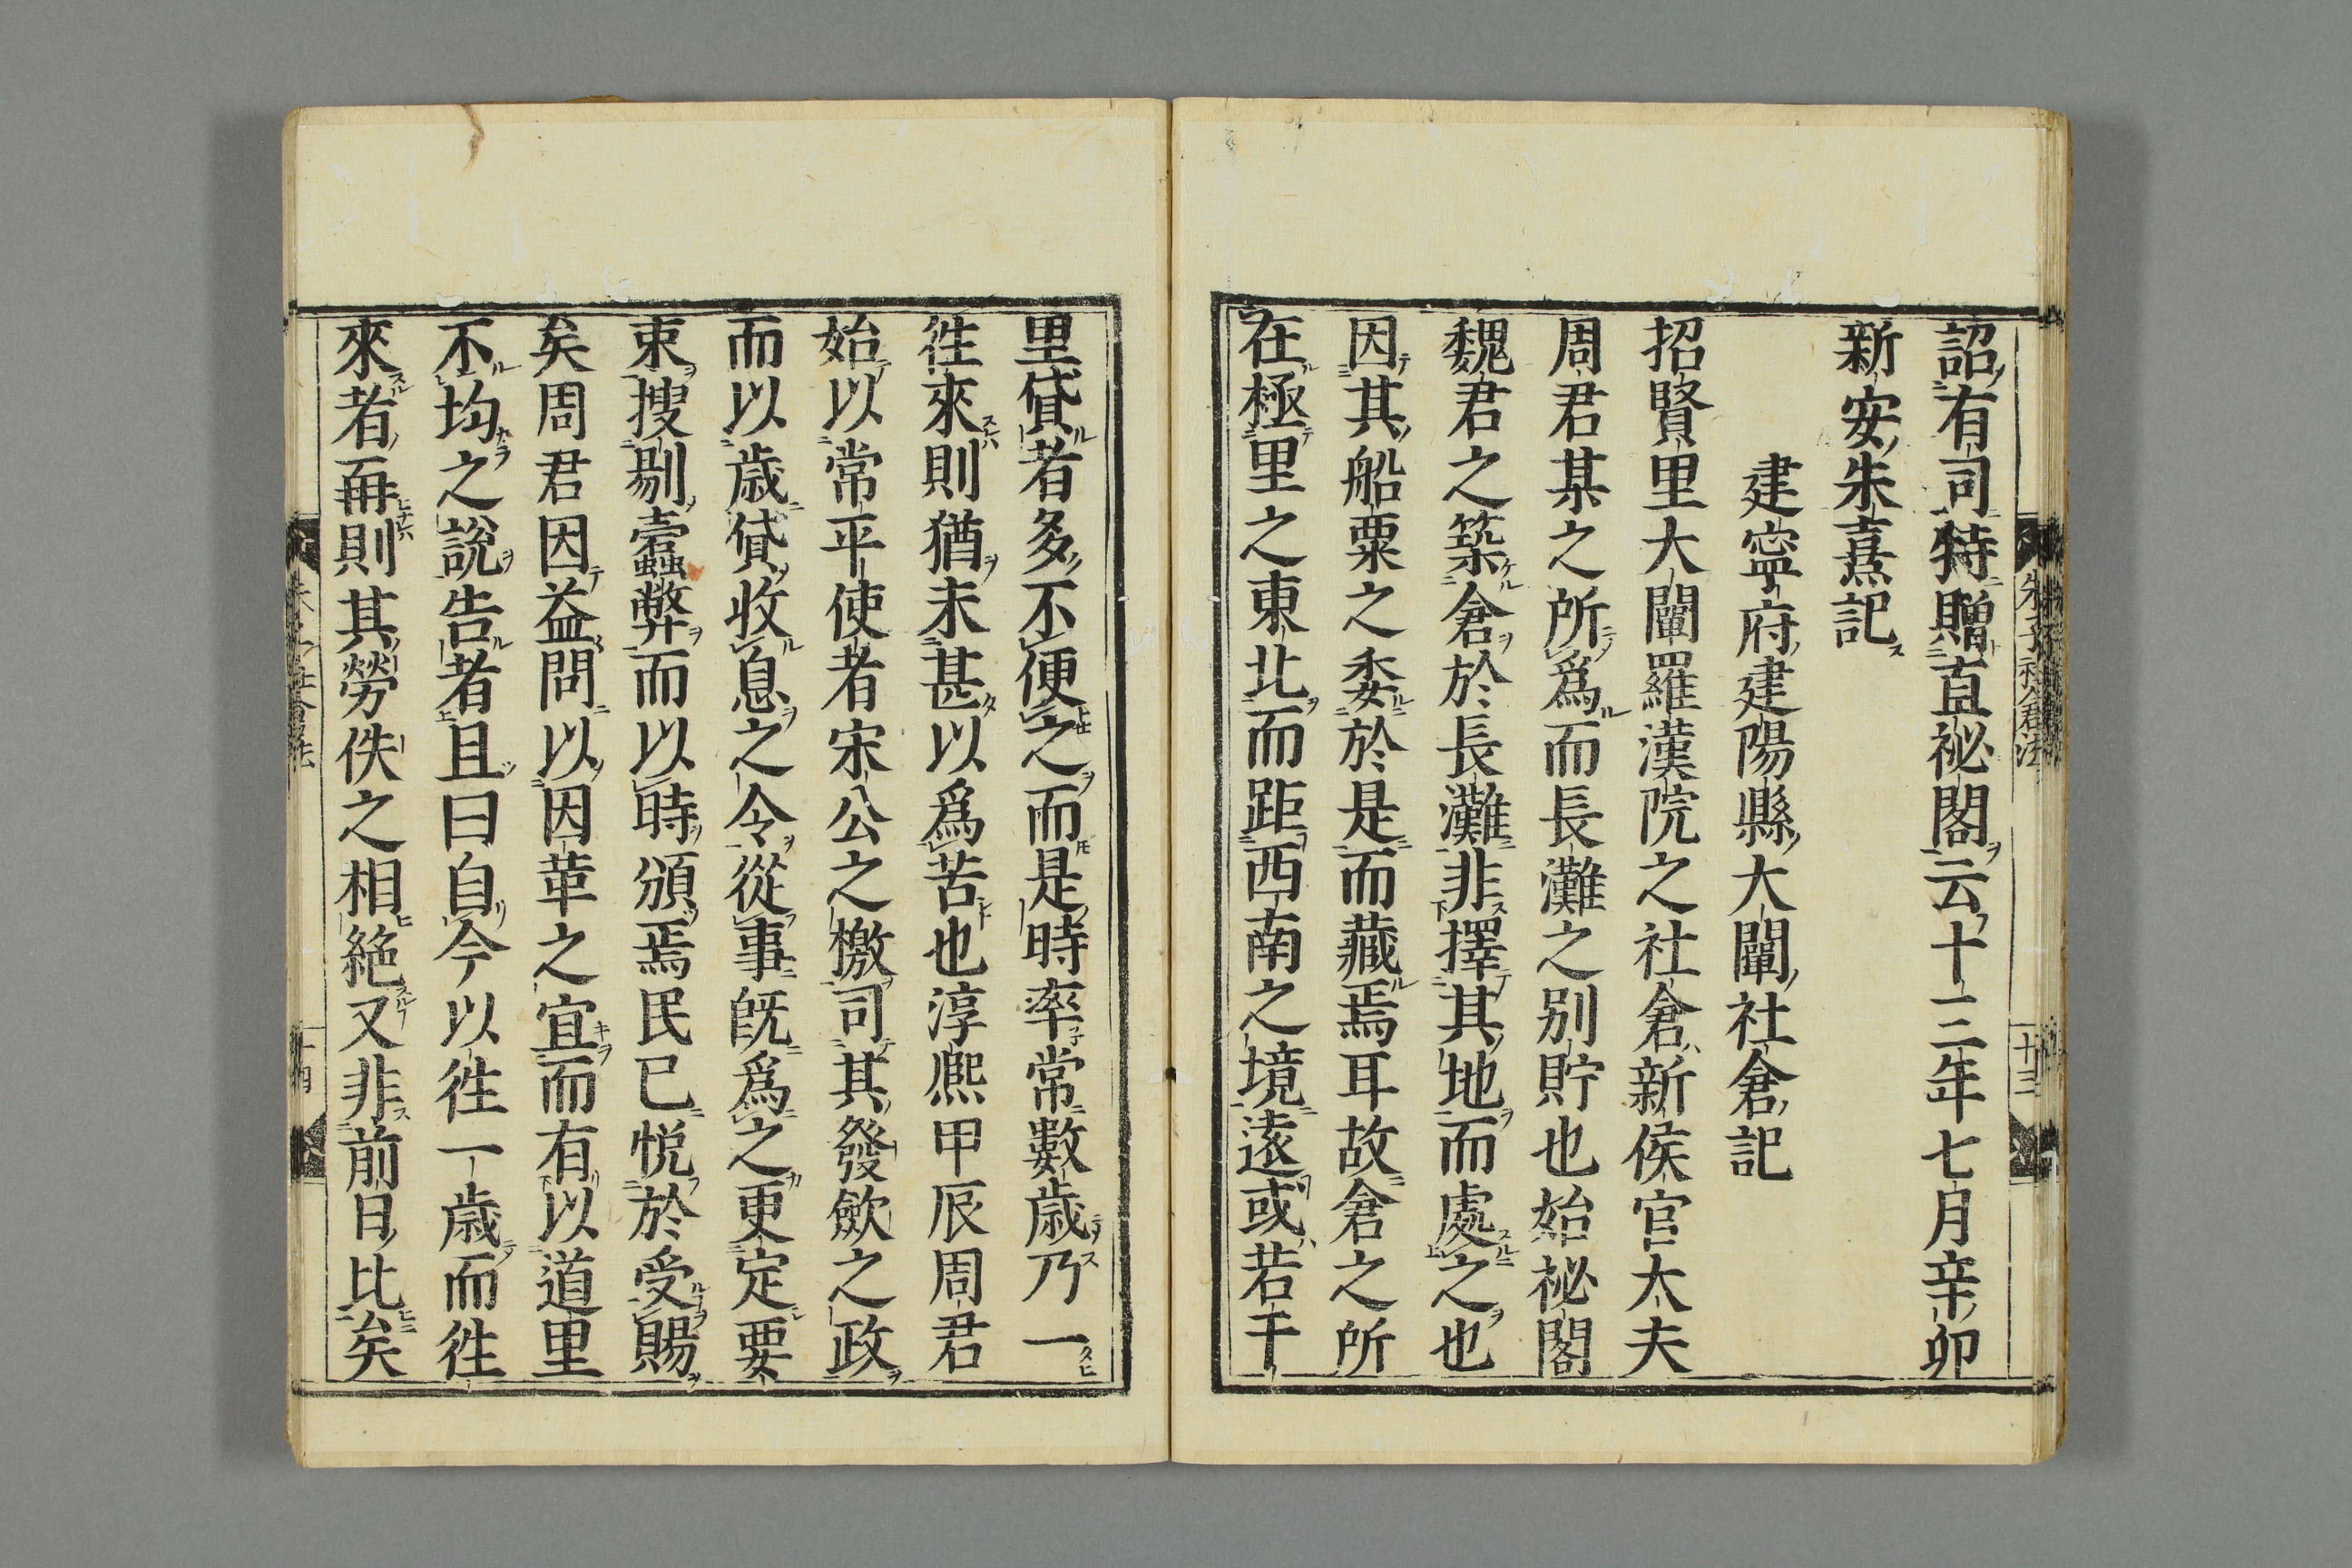 詔有司特贈直祕閣云十三年七月辛卯
新安朱熹記
建寧府建陽縣大闡社倉記
招賢里大闡羅漢院之社倉新候官大夫
周君某之所爲而長灘之别貯也始祕閣
魏君之築倉於長灘非擇其地而處之也
因其船粟之委於是而藏焉耳故倉之所
在極里之東北而距西南之境遠或若干
里貸者多不便之而是時率常數歳乃一
徃來則猶未甚以爲苦也淳熈甲辰周君
始以常平使者宋公之檄司其發歛之政
而以歳貸收息之令從事既爲之更定要
束搜剔蠧弊而以時頒焉民已悦於受賜
矣周君因益問以因革之宜而有以道里
不均之説告者且曰自今以徃一歳而徃
來者再則其勞佚之相絶又非前日比矣
朱子社倉法
十三